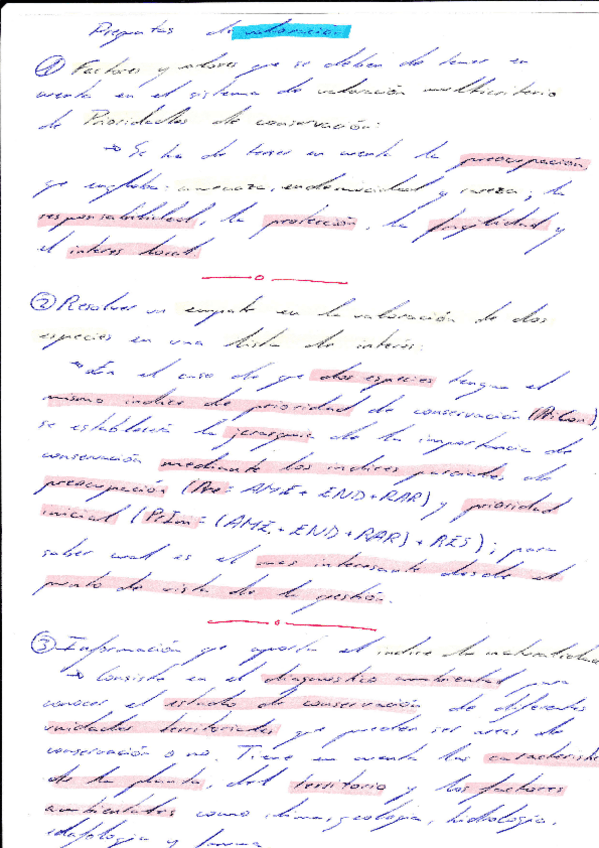 Preguntas de valoración.
① Factores y valores que se deben de tener en
cuenta en el sistema de valoración multicriterio
de Prioridades de conservación:
→ Se ha de tener en cuenta la preocupación,
que engloba: amenaza, endemicidad y rareza; la
responsabilidad, la protección, la fragilidad y
el interes local.
② Resolver un empate en la valoración de dos
especies en una lista de interés:
→ En el caso de que dos especies tengan el
mismo indice de prioridad de conservación (PriCon),
se establecerá la jerarquía de la importancia de
conservación mediante los indices parciales de
preocupación (Pre = AME + END + RAR) y prioridad
inicial (PrIni = (AME + END + RAR) + RES); para
saber cual es el mas interesante desde el
punto de vista de la gestión.
③ Información que aporta el indice de
→ Consiste en el diagnostico ambiental para
conocer el estado de conservación de diferentes
unidades territoriales que pueden ser areas de
conservación o no. Tiene en cuenta las
de la planta, del territorio y los factores
ambientales como clima, geología, hidrología,
edafología y fauna